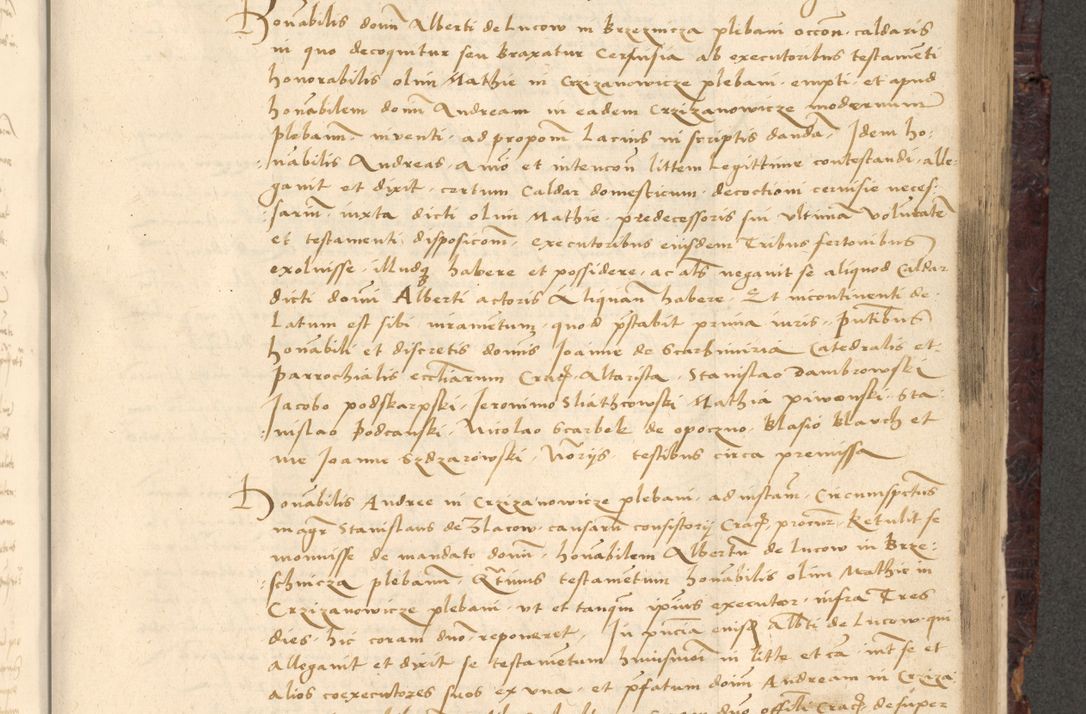 Honorabilis domini Alberti de Lucow in Brzeznicza plebani occon. caldaris
in quo decoquitur seu Braxatur Cervisia ab executoribus testamenti
honorabilis olim Mathie in Crzizanowicze plebani. empti. et apud
honabilem domi Andream in eadem Crzizanowicze modernum
plebanum inventi. ad propom lacius in scriptis danda. Idem ho:
:nabilis Andreas. Animo et intencon littem legittime contestandi. alle:
gavit et dixit. certum Caldar domesticum. decoctioni cervisie neces:
:sarium. iuxta dicti olim Mathie. predecessoris sui ultima voluntate
et testamenti disposicom. executoribus eiusdem Tribus fertonibus
exolvisse. illudq habere et possidere. ac als negavit se aliquod Caldar
dicti domi Alberti actoris Aliquam habere. Et incontinenti de:
Latum est sibi iurametum. quod pstabit prima iuris. pntibus
honabili et discretis domis Joanne de Scarbimiria Catedralis et
parrochialis eccliarum Crac. Altarista. Stanislao Dambrowski
Jacobo podskarpski. Jeronimo Sliathcowski Mathia piwonski. Sta:
:nislao Podcanski. Nicolao Scarbek de opoczno. Blasio Blarch et
me Joanne Szdzarowski. Norijs testibus circa premissa
Honabilis Andree in Crzizanowicze plebani. ad instam. Circumspctus
magr Stanislaus de Zlacow. causarum consistorij Crac. procur. Retulit se
monuisse de mandato domi. honabilem Albertum de Lucow in Brze:
:schnicza plebanum. Qtinus testametum honabilis olim Mathie in
Crzizanowicze plebani. ut et tanqm ipius executor. infra Tres
dies. hic coram dno. reponeret. In pncia eiusd Albti de Lucow. qui
Allegavit et dixit se testametum huiusmoi in litte et ca. int se et
alios coexecutores suos ex una. et pfatum domi Andream in Crziza